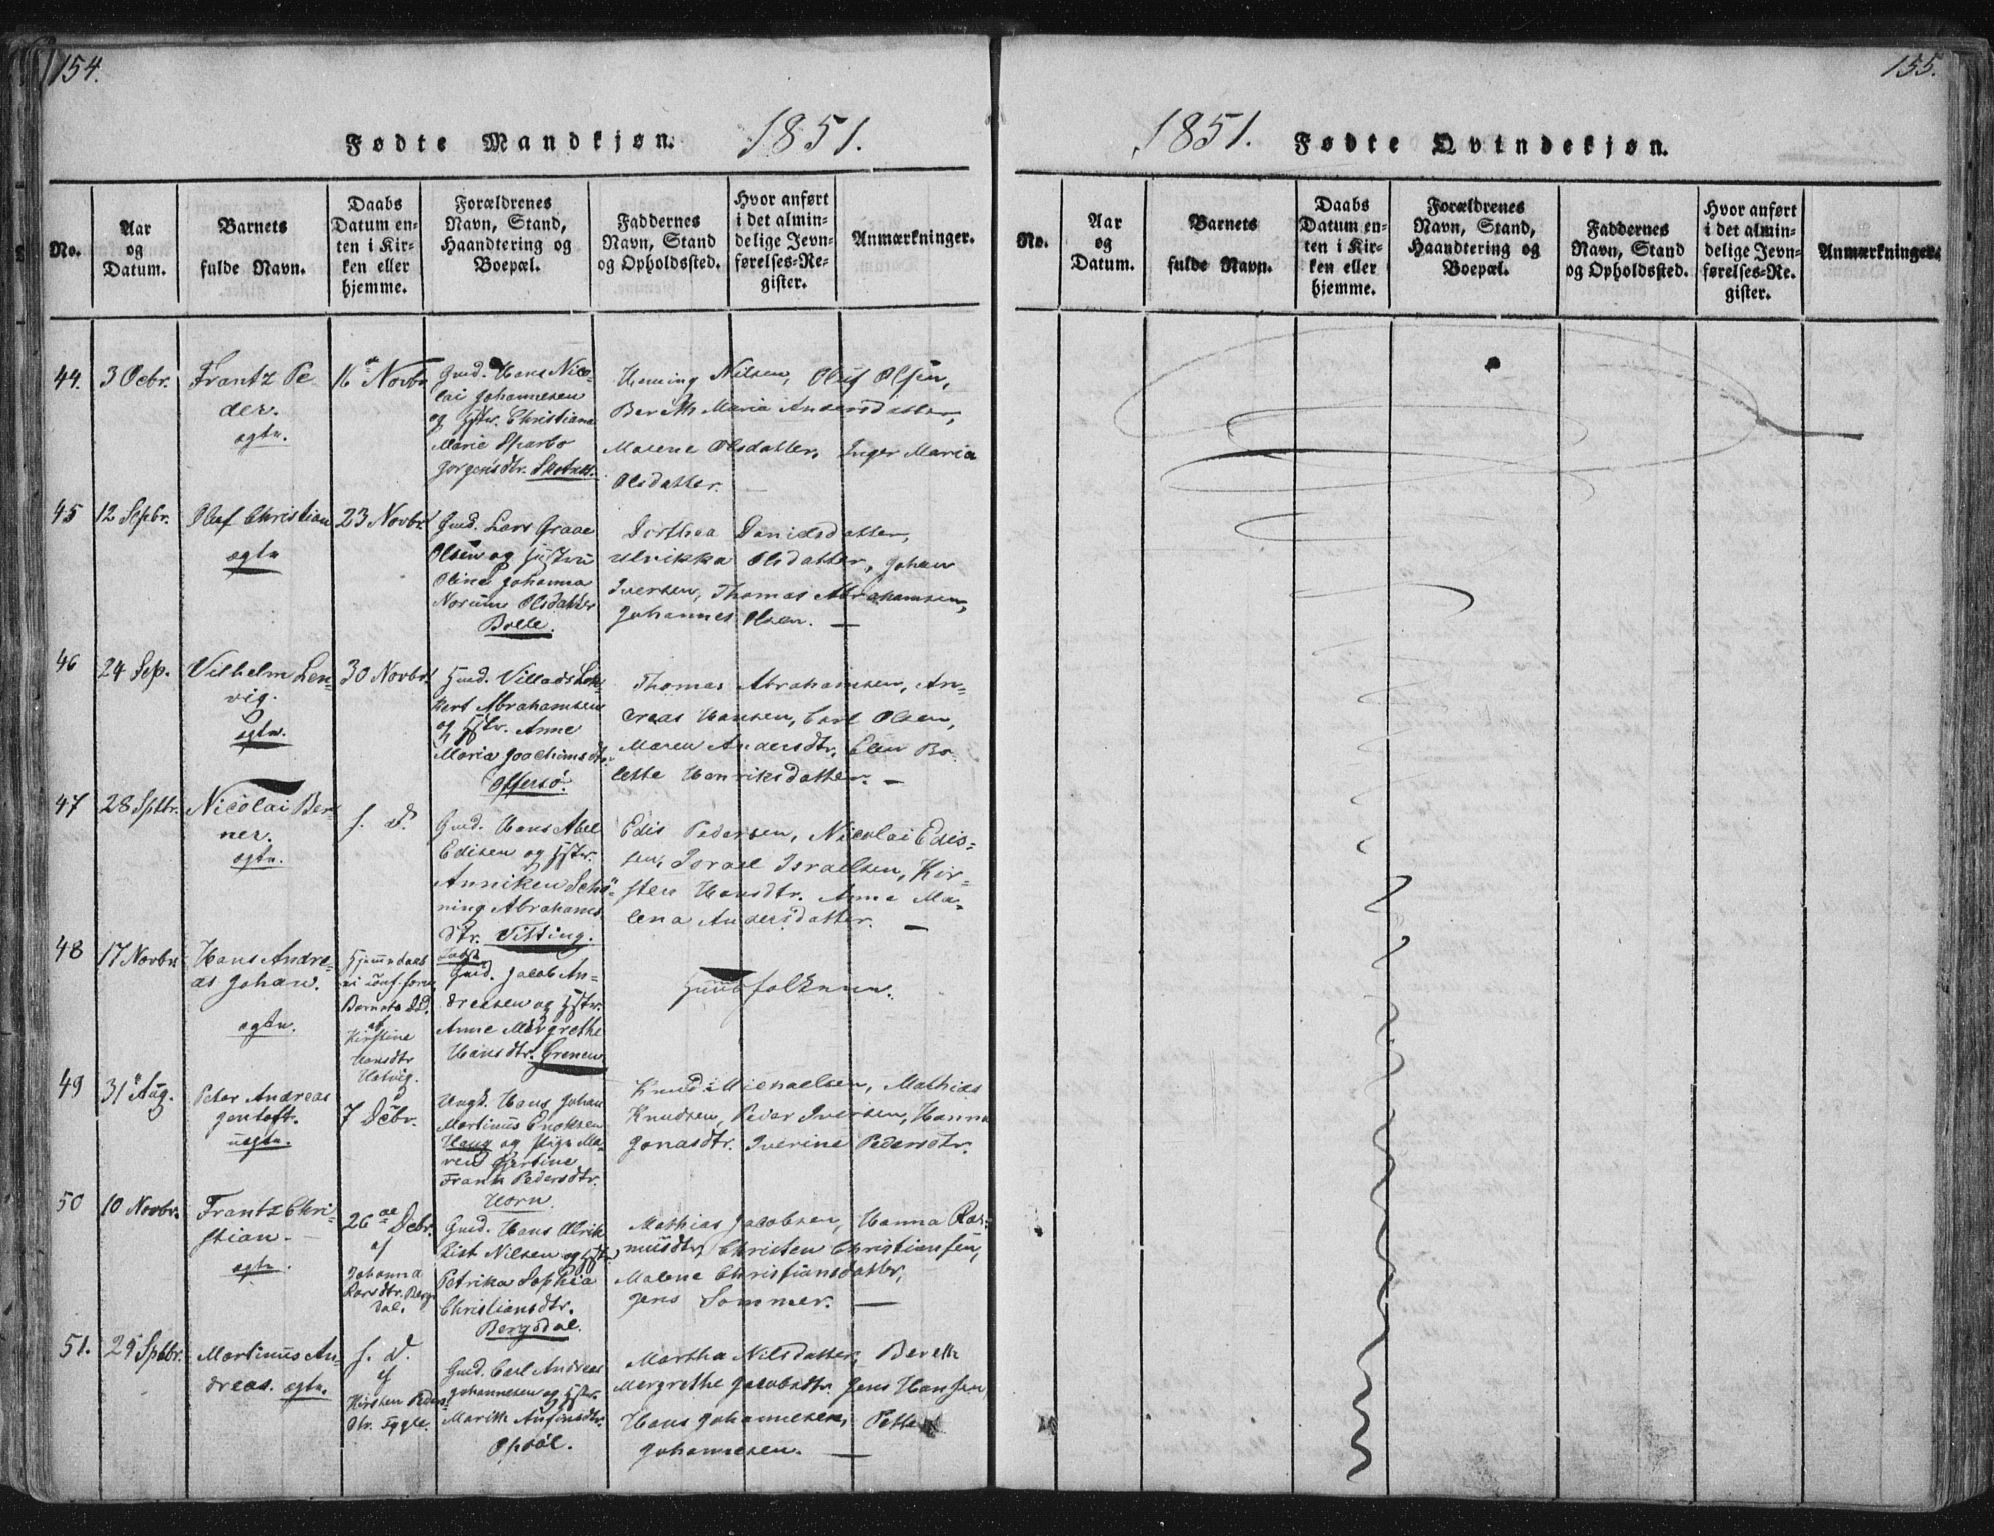 154.
Fødte Mandkjøn. 1851.
No.
Aar
og
Datum.
Barnets
fulde Navn.
Daabs
Datum en-
ten i Kir-
ken eller
hjemme.
Forældrenes
Navn, Stand,
Haandtering og
Boepæl.
Faddernes
Navn, Stand
og Opholdssted.
Hvor anført
i det almin-
delige Jevn-
førelses-Re-
gister.
Anmærkninger.
44.
3 Ocbr.
Frantz Pe
der.
ægte.
16 Novbr
Gmd. Hans Nico-
lai Johannesen
og Hstr. Christiana
Marie Sparbo
Jørgensdtr.
Henning Nilsen, Oluf Olsen,
Bereth Maria Andersdatter,
Malene Olsdatter, Inger Maria
Olsdatter.
45
12 Sepbr.
Olaf Christian
ægte
23 Novbr.
Gmd. Lars Graae
Olsen og Hustru
Oline Johanna
Norum Olsdatter
Bolle.
Dorthea Danielsdatter,
Ulrikka Olsdatter, Johan
Iversen, Thomas Abrahamsen,
Johannes Olsen. —
46
24 Sep.
Vilhelm Len-
vig.
ægte.
30 Novbr.
Gmd. Villads
Abrahamsen
og Hstr. Anne
Maria Joachimsdtr.
Offersø.
Thomas Abrahamsen, An-
dreas Hansen, Carl Olsen,
Maren Andersdtr. Elen Bo-
lette Henriksdatter. —
47
28 Sptbr.
Nicolai Ber
ner.
ægte.
s. D.
Gmd. Hans Abel
Edisen og Hstr.
Anniken Schö-
ning Abrahams
dtr. Vitting.
Edis Pedersen, Nicolai Edis-
sen, Israel Israelsen, Kir-
sten Hansdtr. Anne Ma-
lena Andersdatter. —
48
17 Novbr
Hans Andre-
as Johan.
ægte.
Hjemmedøbt
af
Kirstine
Hansdtr
Hatvig.
Gmd. Jacob An-
dreesen og Hstr.
Anne Margrethe
Hansdtr. Grenen
folkene.
49
31 Aug.
Peter Andreas
Jentoft.
uægte.
7 Debr.
Ungk. Hans Johan
Martinus Enoksen
Haug og Pige Ma-
ren Hertine
Frank Pedersdtr.
Horn.
Knud Michaelsen, Mathias
Knudsen, Peder Iversen, Hanna
Jonasdtr. Iverine Pedersdtr.
50
10 Novbr.
Frantz Chri-
stian. —
ægte.
26 Debr.
af
Johanna
Larsdtr. Bergs
dal.
Gmd. Hans Ulrik
List Nilsen og Hstr
Petrika Sophia
Christiansdtr.
Bergsdal.
Mathias Jacobsen, Hanna Ras-
musdtr, Christen Christiansen,
Malene Christiansdatter,
Jens Sommer. —
51.
25 Sptbr.
Martinus An
dreas. ægte.
s. D.
af
Kirsten Peders
dtr. Tggle.
Gmd. Carl Andreas
Johannesen og Hstr.
Marith Anfinsdtr.
Opsøl.
Martha Nilsdatter, Bereth
Mergrethe Jacobsdtr. Jens Hansen
Hans Johannesen, Petter
Johannesen. —
155.
1851. Fødte Qvindekjøn.
No.
Aar
og
Datum.
Barnets
fulde Navn.
Daabs
Datum en-
ten i Kir-
ken eller
hjemme.
Forældrenes
Navn, Stand,
Haandtering og
Boepæl.
Faddernes
Navn, Stand
og Opholdssted.
Hvor anført
i det almin-
delige Jevn-
førelses-Re-
gister.
Anmærkninger.